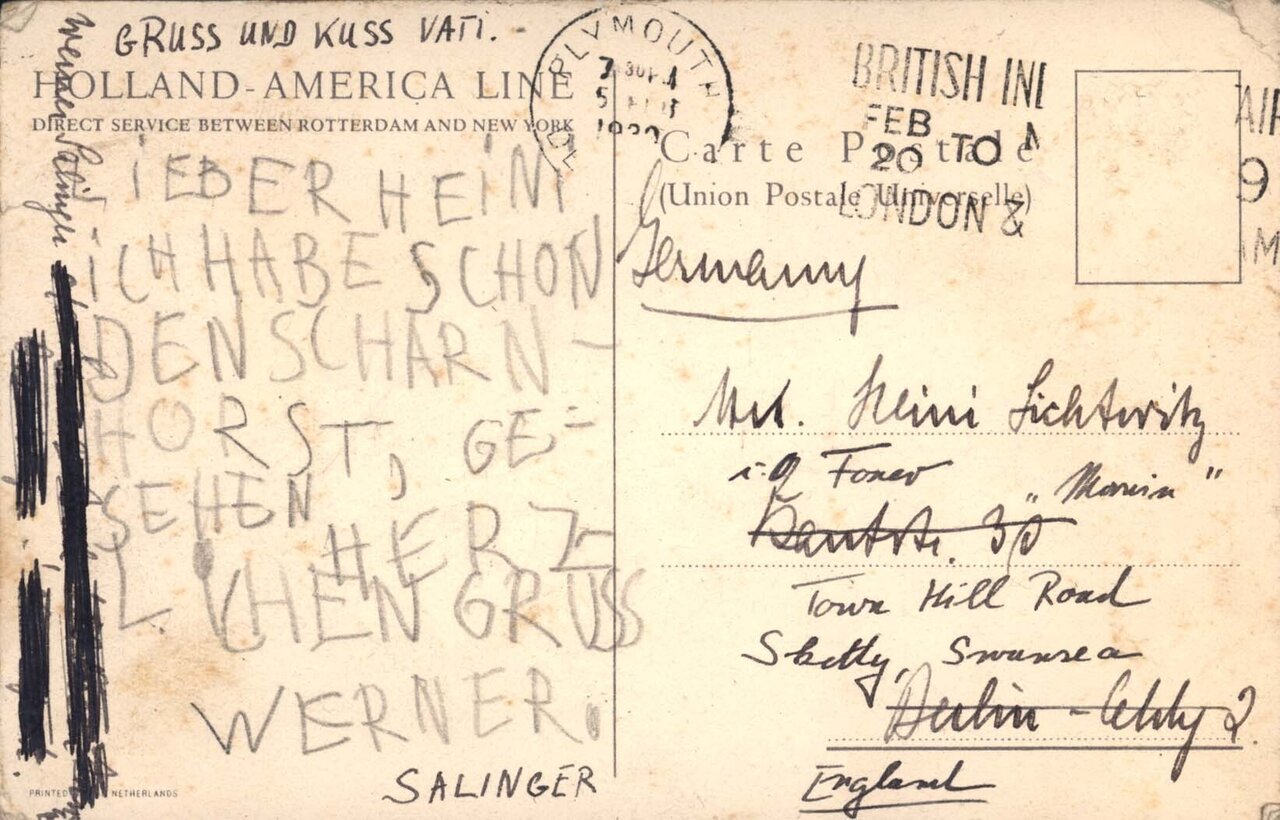 GRUSS UND KUSS VATI. -
HOLLAND-AMERICA LINE
DIRECT SERVICE BETWEEN ROTTERDAM AND NEW YORK
LIEBER HEINI
ICH HABE SCHON
DEN SCHARN-
HORST, GE=
SEHEN
HERZ-
LICHEN GRUSS
WERNER.
SALINGER
PRINTED NETHERLANDS
Werner Salinger
PLYMOUTH
7 30 PM
5
1939
BRITISH IN
FEB
20 TO
LONDON &
AIR
9
AM
Carte Postale
(Union Postale Universelle)
Germany
Heini Lichtwitz
"Marvin"
Kantstr. 30
Town Hill Road
Sketty, Swansea
Berlin - 2.
England